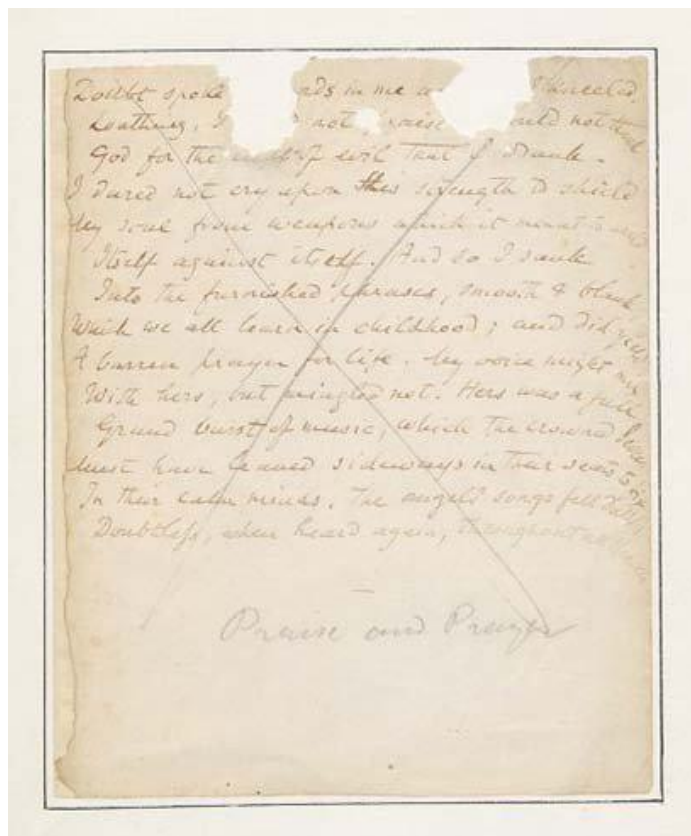 Doubt spoke ads in me
Loathing, I not raise ould not thank
God for the of evil that I drank.
I dared not cry upon His strength to shield
My soul from weapons which it meant to
Itself against itself. And so I sank
Into the furnished phrases, smooth & blank
Which we all learn in childhood; and did yield
A barren prayer for life. My voice might mix
With hers, but mingled not. Hers was a full
Grand burst of music, which the crowned
Must have leaned sideways in their seats to fix
In their calm minds. The angels songs fell dull
Doubtless, when heard again, throughout all
Praise and Prayer